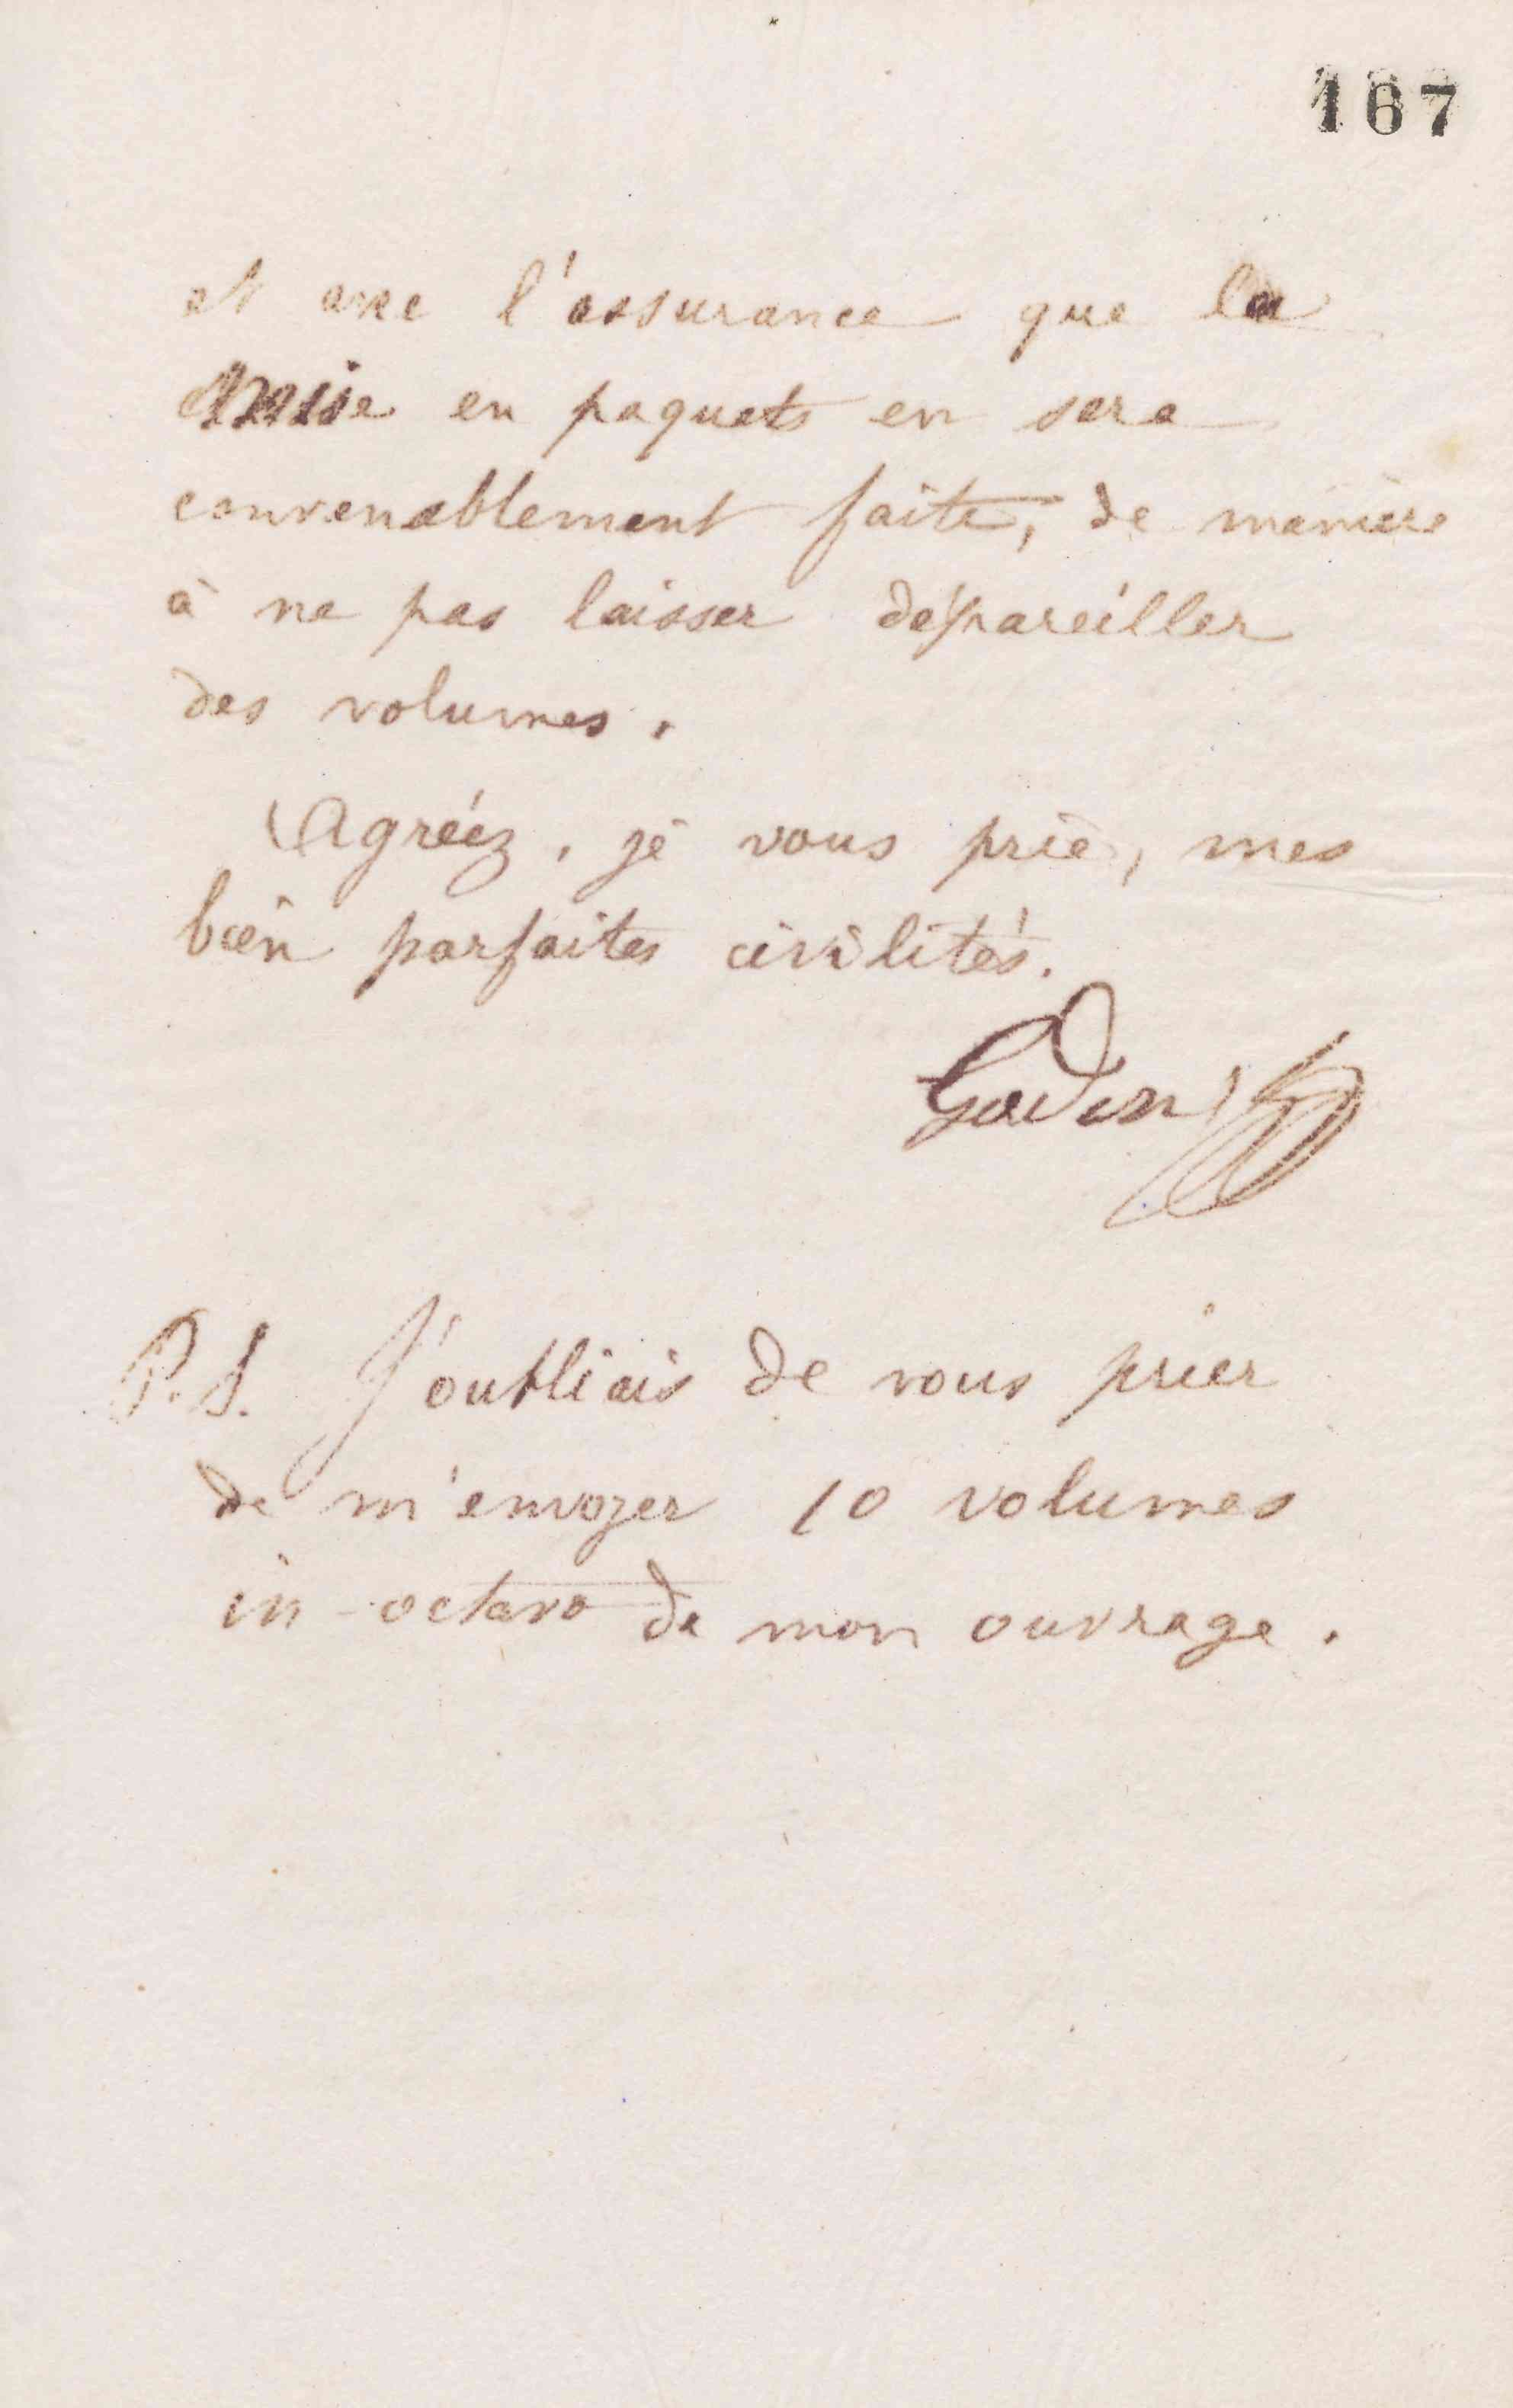 167
et avec l'assurance que la
mise en paquets en sera
convenablement faite, de manière
à ne pas laisser dépareiller
des volumes.
Agréez, je vous prie, mes
bien parfaites civilités.
Godin
P.S. J'oubliais de vous prier
de m'envoyer 10 volumes
in-octavo de mon ouvrage.